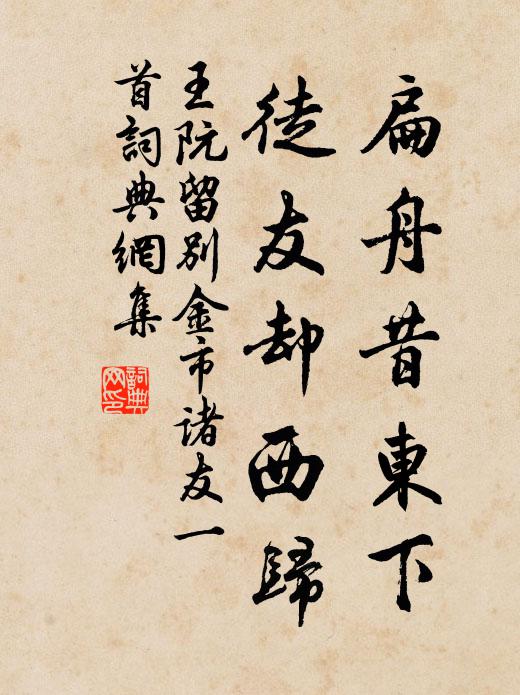 扁舟昔東下
徒友却西歸
王阮留別金市诸友一
首詞典網集
詞典网印